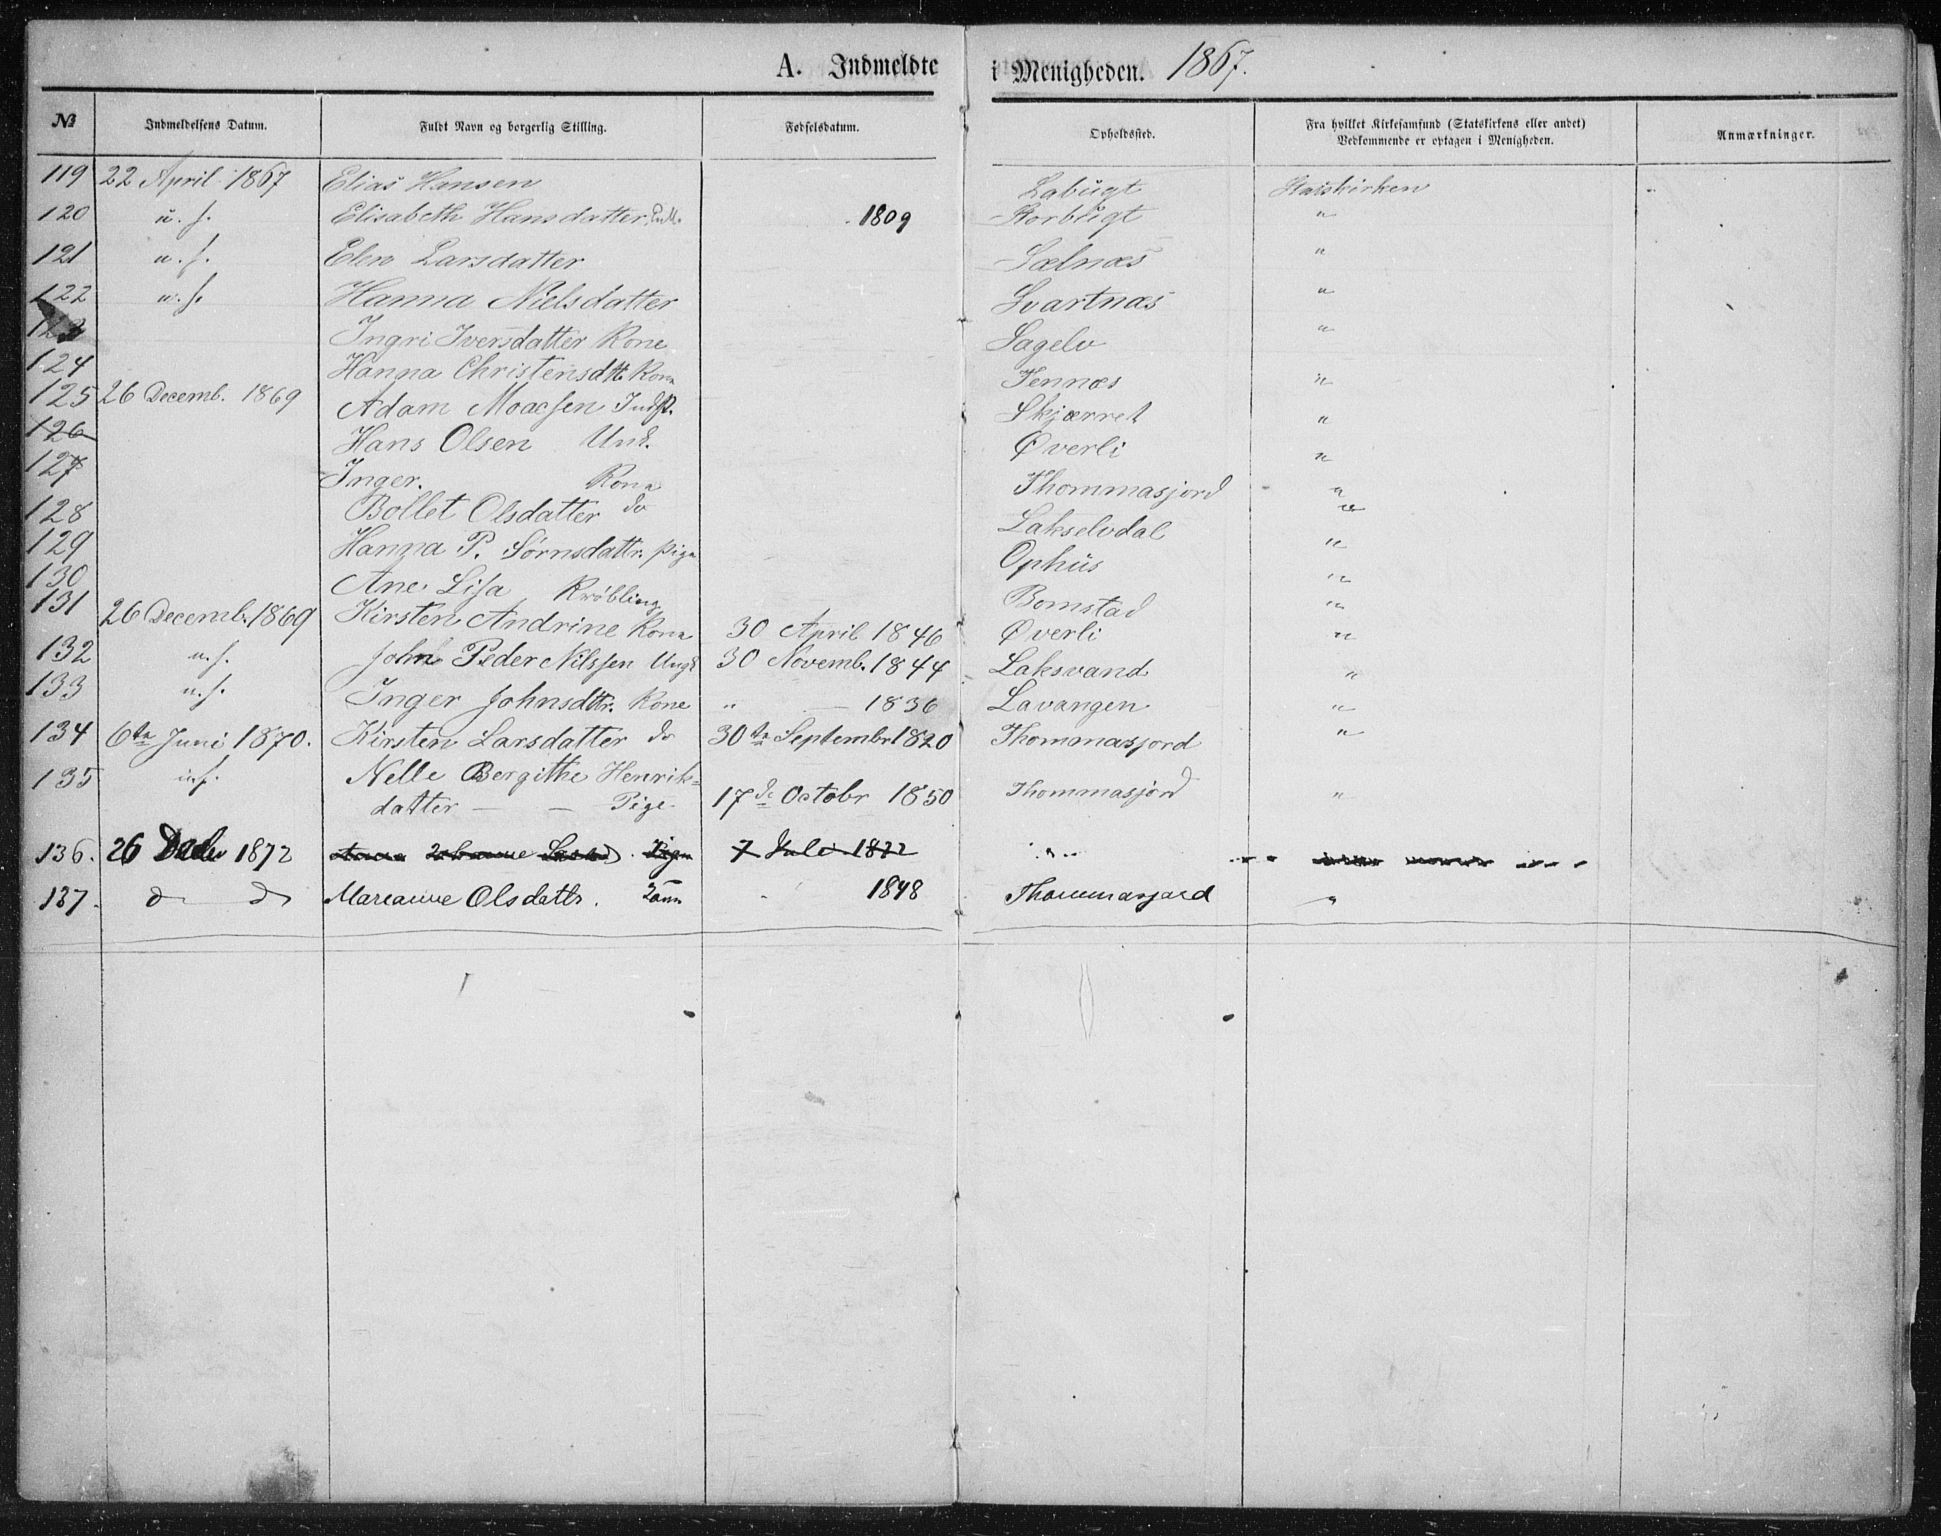 A. Indmeldte i Menigheden. 1867.
№ Indmeldelsens Datum. Fuldt Navn og borgerlig Stilling. Fødselsdatum. Opholdssted. Fra hvilket Kirkesamfund (Statskirkens eller andet) Vedkommende er optagen i Menigheden. Anmærkninger.
119 22 April 1867 Elias Hansen Labugt Statskirken
120 u. s. Elisabeth Hansdatter 1809 Storbugt "
121 u. s. Elen Larsdatter Sælnæs "
122 u. s. Hanna Nielsdatter Svartnæs "
123 Ingri Iversdatter Kone Sagelv "
124 Hanna Christensdtt Kone Tennæs "
125 26 Decemb. 1869 Adam Moacsen Indst. Skjærret "
126 Hans Olsen Unk. Øverli "
127 Inger. Kone Thommasjord "
128 Bollet Olsdatter do Lakselvdal "
129 Hanna P. Sørnsdattr. pige Ophüs "
130 Ane Lisa Krøbling Bomstad "
131 26 Decemb. 1869 Kirsten Andrine Kone 30 April 1846 Øverli "
132 u. s. John Peder Nilssen Ungk 30 Novemb. 1844 Laksvand "
133 u. s. Inger Johnsdttr. Kone " — 1836 Lavangen "
134 6te Juni 1870. Kirsten Larsdatter do 30te Septembr 1820 Thommasjord "
135 u. s. Nelle Bergithe Henriks=
datter — — Pige 17de Octobr 1850 Thommasjord "
136. 26 1872 7 Juli 1822 "
137. d d Marianne Olsdattr. 1848 Thommasjord "